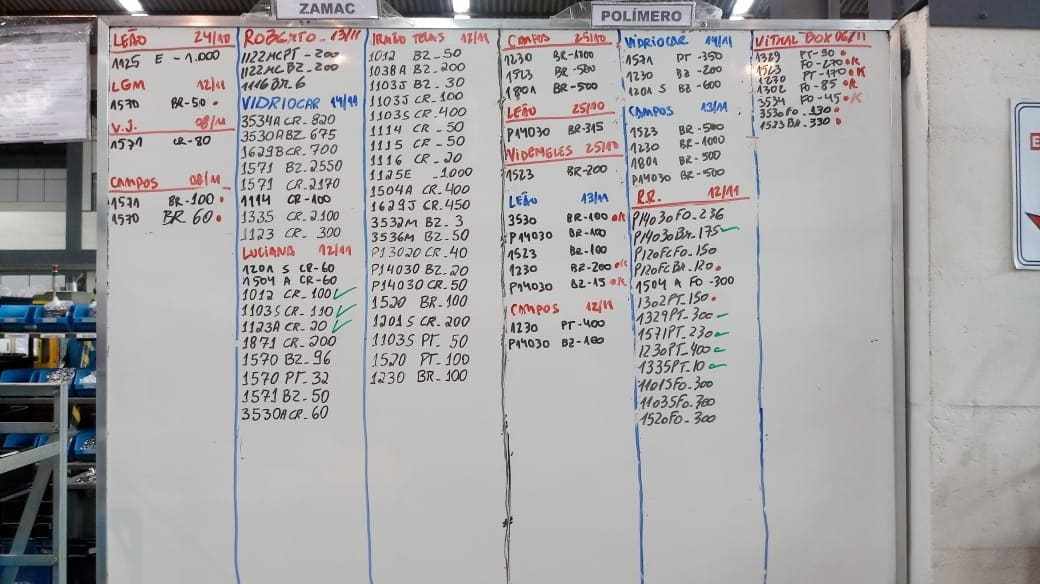 ZAMAC
POLÍMERO
LEÃO 24/10
1125 E - 1.000
LGM 12/11
1570 BR-50
V.J. 08/11
1571 CR-80
CAMPOS 08/11
1571 BR-100
1570 BR 60
ROBERTO - 13/11
1122MCPT - 200
1122MC BZ - 200
1116 BR - 6
VIDRIOCAR 14/11
3534A CR - 820
3530A BZ 675
1629B CR - 700
1571 BZ - 2550
1571 CR - 2170
1114 CR - 100
1335 CR - 2100
1123 CR - 300
LUCIANA 12/11
1201 S CR-60
1504 A CR-60
1012 CR - 100 ✓
1103S CR - 110 ✓
1123A CR - 20 ✓
1871 CR - 200
1570 BZ - 96
1570 PT - 32
1571 BZ - 50
3530A CR - 60
IRMÃO TELAS 12/11
1012 BZ - 50
1038A BZ - 200
1103J BZ - 30
1103J CR - 100
1103S CR - 400
1114 CR - 50
1115 CR - 50
1116 CR - 20
1125E - 1000
1504A CR - 400
1629J CR - 450
3532M BZ - 3
3536M BZ - 50
P13020 CR - 40
P14030 BZ - 20
P14030 CR - 50
1520 BR - 100
1201S CR - 200
1103S PT - 50
1520 PT - 100
1230 BR - 100
CAMPOS 25/10
1230 BR-1200
1523 BR-500
1801 BR-500
LEÃO 25/10
P14030 BR-315
VIDEMGLES 25/10
1523 BR-200
LEÃO 13/11
3530 BR-100 OK
P14030 BR-100
1523 BR-100
1230 BR-200 OK
P14030 BZ-15 OK
CAMPOS 12/11
1230 PT-400
P14030 BZ-100
VIDRIOCAR 14/11
1571 PT - 350
1230 BZ - 200
1201 S BZ - 600
CAMPOS 13/11
1523 BR - 500
1230 BR - 1000
1801 BR - 500
P14030 BR - 500
R.R. 12/11
P14030 FO - 236
P14030 BR - 175 ✓
P120FC FO - 150
P120FC BR - 120
1504 A FO - 300
1302 PT - 150
1329 PT - 300 ✓
1571 PT - 230 ✓
1230 PT - 400 ✓
1335 PT - 10 ✓
1101S FO - 300
1103S FO - 300
1520 FO - 300
VITRAL BOX 06/11
1329 PT-90
1523 FO-270 OK
1230 PT-170 OK
1302 FO-85 OK
3534 FO-45 OK
3530 FO - 130
1523 BR - 330